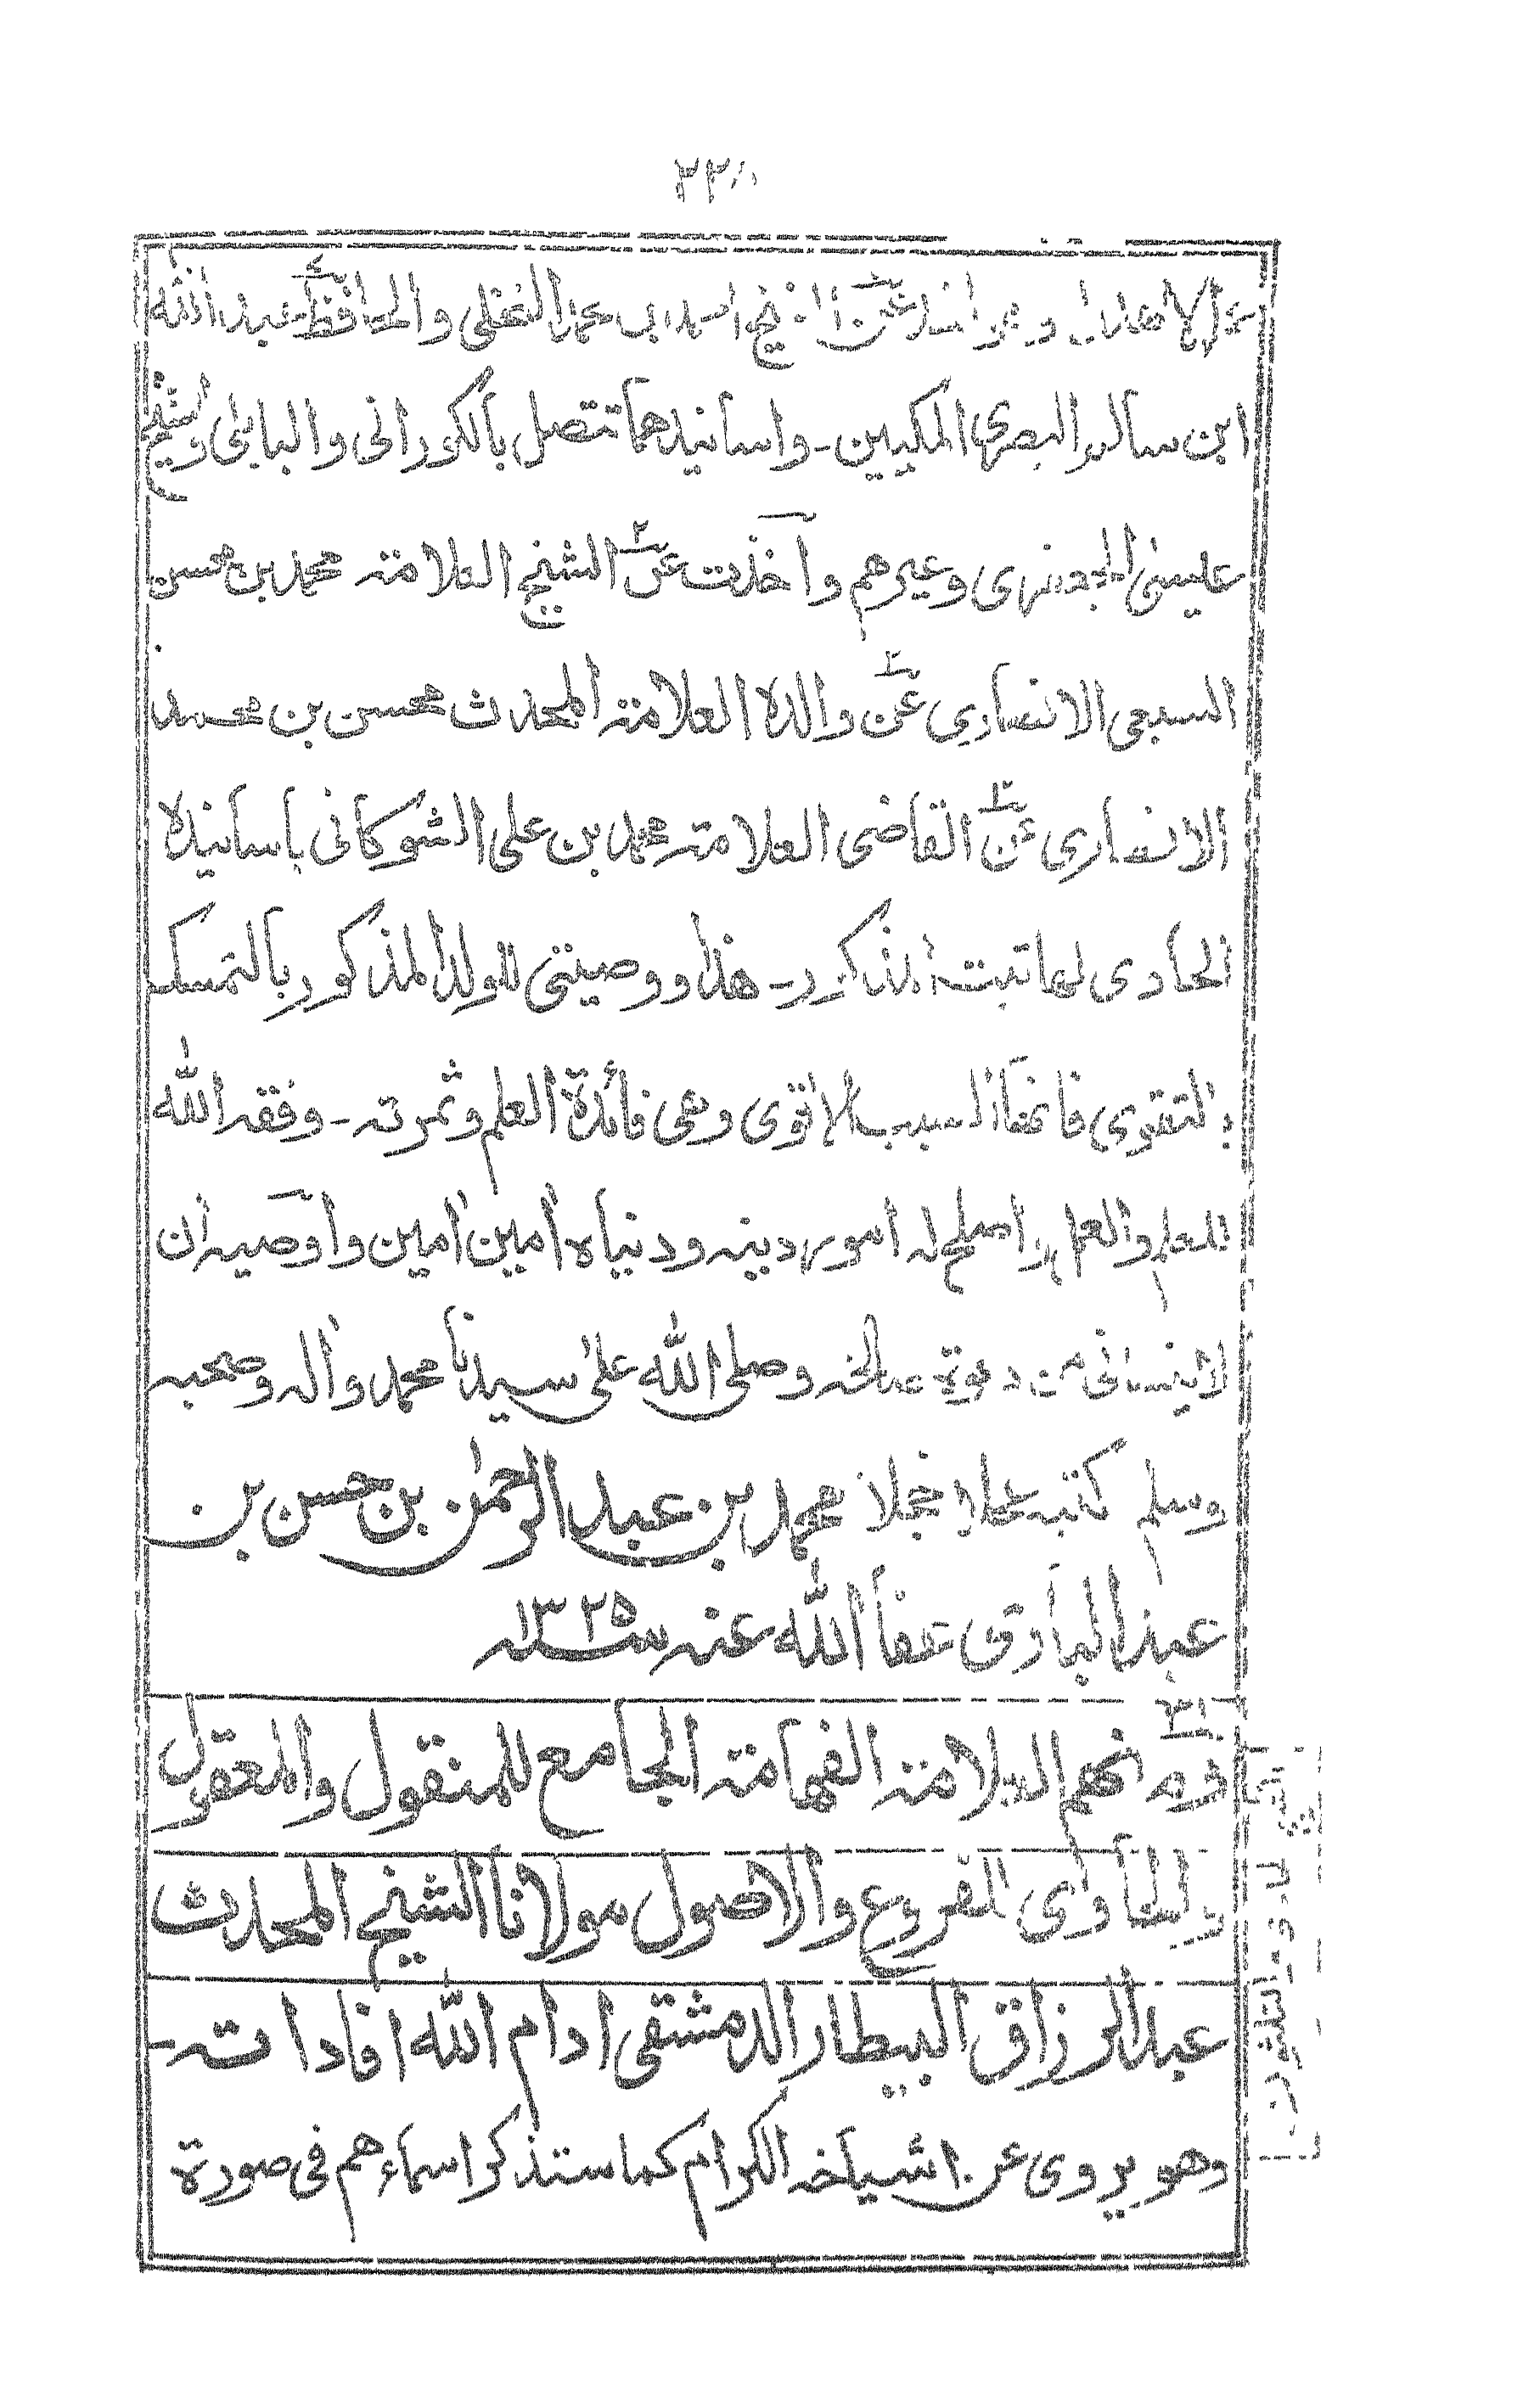 والحافظ عبد الله
ابن سالم البصري المكيين - واسانيدهما تتصل بالكوراني والبابلي والشيخ
عليسى الجعفري وغيرهم وآخذت عن الشيخ العلامة محمد بن محسن
السبعي الانصاري عن والده العلامة المحدث محسن بن محمد
الانصاري عن القاضي العلامة محمد بن علي الشوكاني باسانيده
الحاوي لها ثبت المذكور - هذا ووصيتي للولد المذكور بالتمسك
بالتقوى فانها السبب الاقوى وهي فائدة العلم وثمرته - وفقه الله
للعلم والعمل واصلح له امور دينه ودنياه امين امين واوصيه ان
لا ينساني من دعوة صالحة وصلى الله على سيدنا محمد واله وصحبه
وسلم كتبه عجلا خجلا محمد بن عبد الرحمن بن حسن بن
عبد الباري عفا الله عنه سنة ١٣٢٥
ومنهم العلامة الفهامة الجامع للمنقول والمعقول
والحاوي للفروع والاصول مولانا الشيخ المحدث
عبد الرزاق البيطار الدمشقي ادام الله افاداته -
وهو يروي عن اشياخه الكرام كما ستذكر اسماءهم في صورة